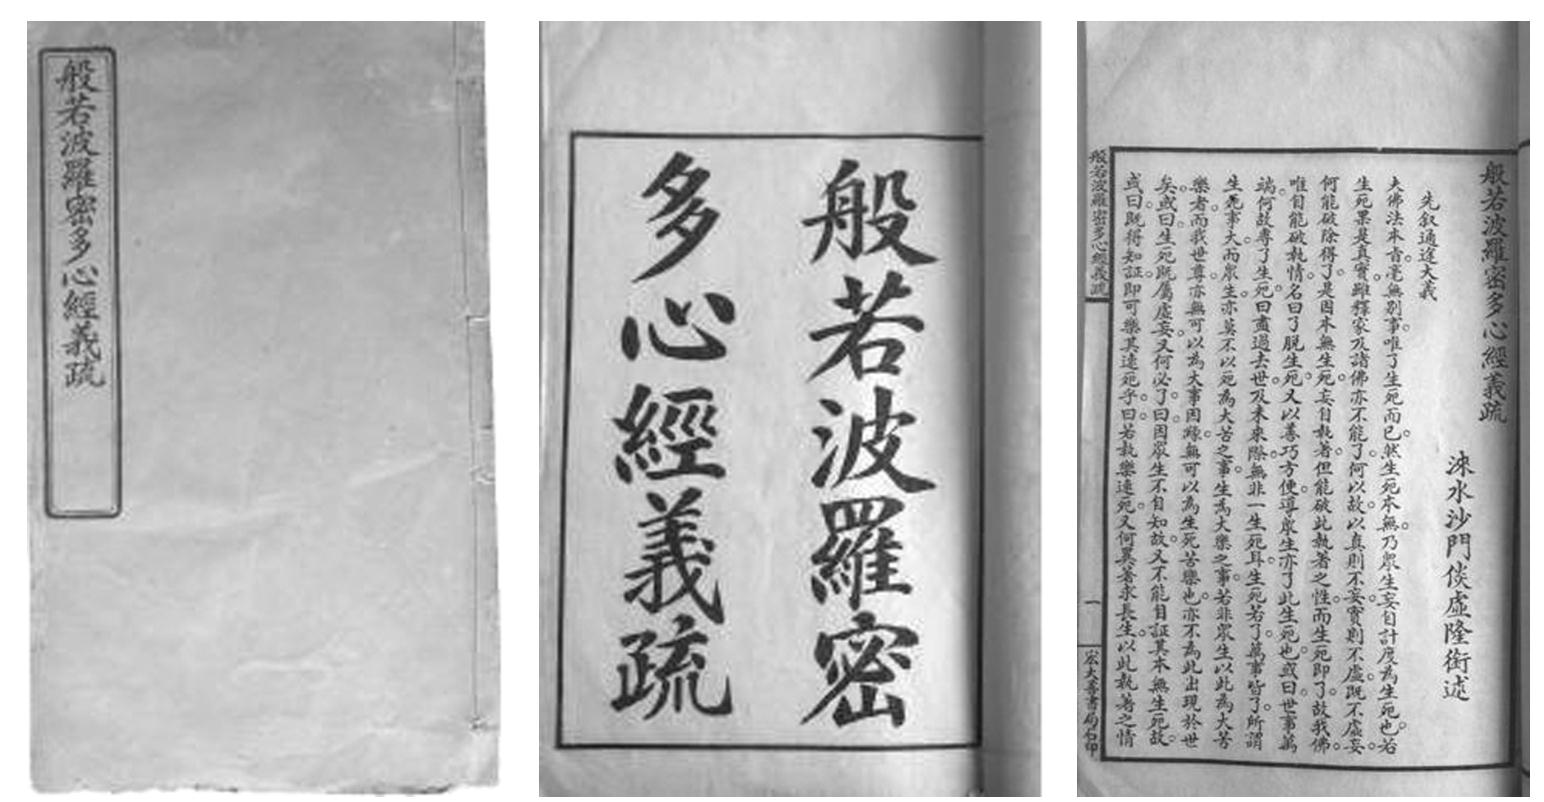 般若波羅密多心經義疏
般若波羅密
多心經義疏
般若波羅密多心經義疏
涑水沙門倓虛隆銜述
先叙通途大義
夫佛法本旨毫無别事唯了生死而已然生死本無乃衆生妄自計度為生死也若
生死果是真實雖釋家及諸佛亦不能了何以故以真則不妄實則不虛既不虛妄
何能破除得了是因本無生死妄自執著但能破此執著之性而生死即了故我佛
唯自能破執情名曰了脱生死又以善巧方便導衆生亦了此生死也或曰世事萬
端何故專了生死曰盡過去世及未來際無非一生死耳生死若了萬事皆了所謂
生死事大而衆生亦莫不以死為大苦之事生為大樂之事若非衆生以此為大苦
樂者而我世尊亦無可以為大事因緣無可以為生死苦樂也亦不為此出現於世
矣或曰生死既屬虛妄又何必了曰因衆生不自知故又不能自証其本無生死故
或曰既得知証即可樂其速死乎曰若執樂速死又何異著求長生以此執著之情
般若波羅密多心經義疏
一
宏大善書局石印